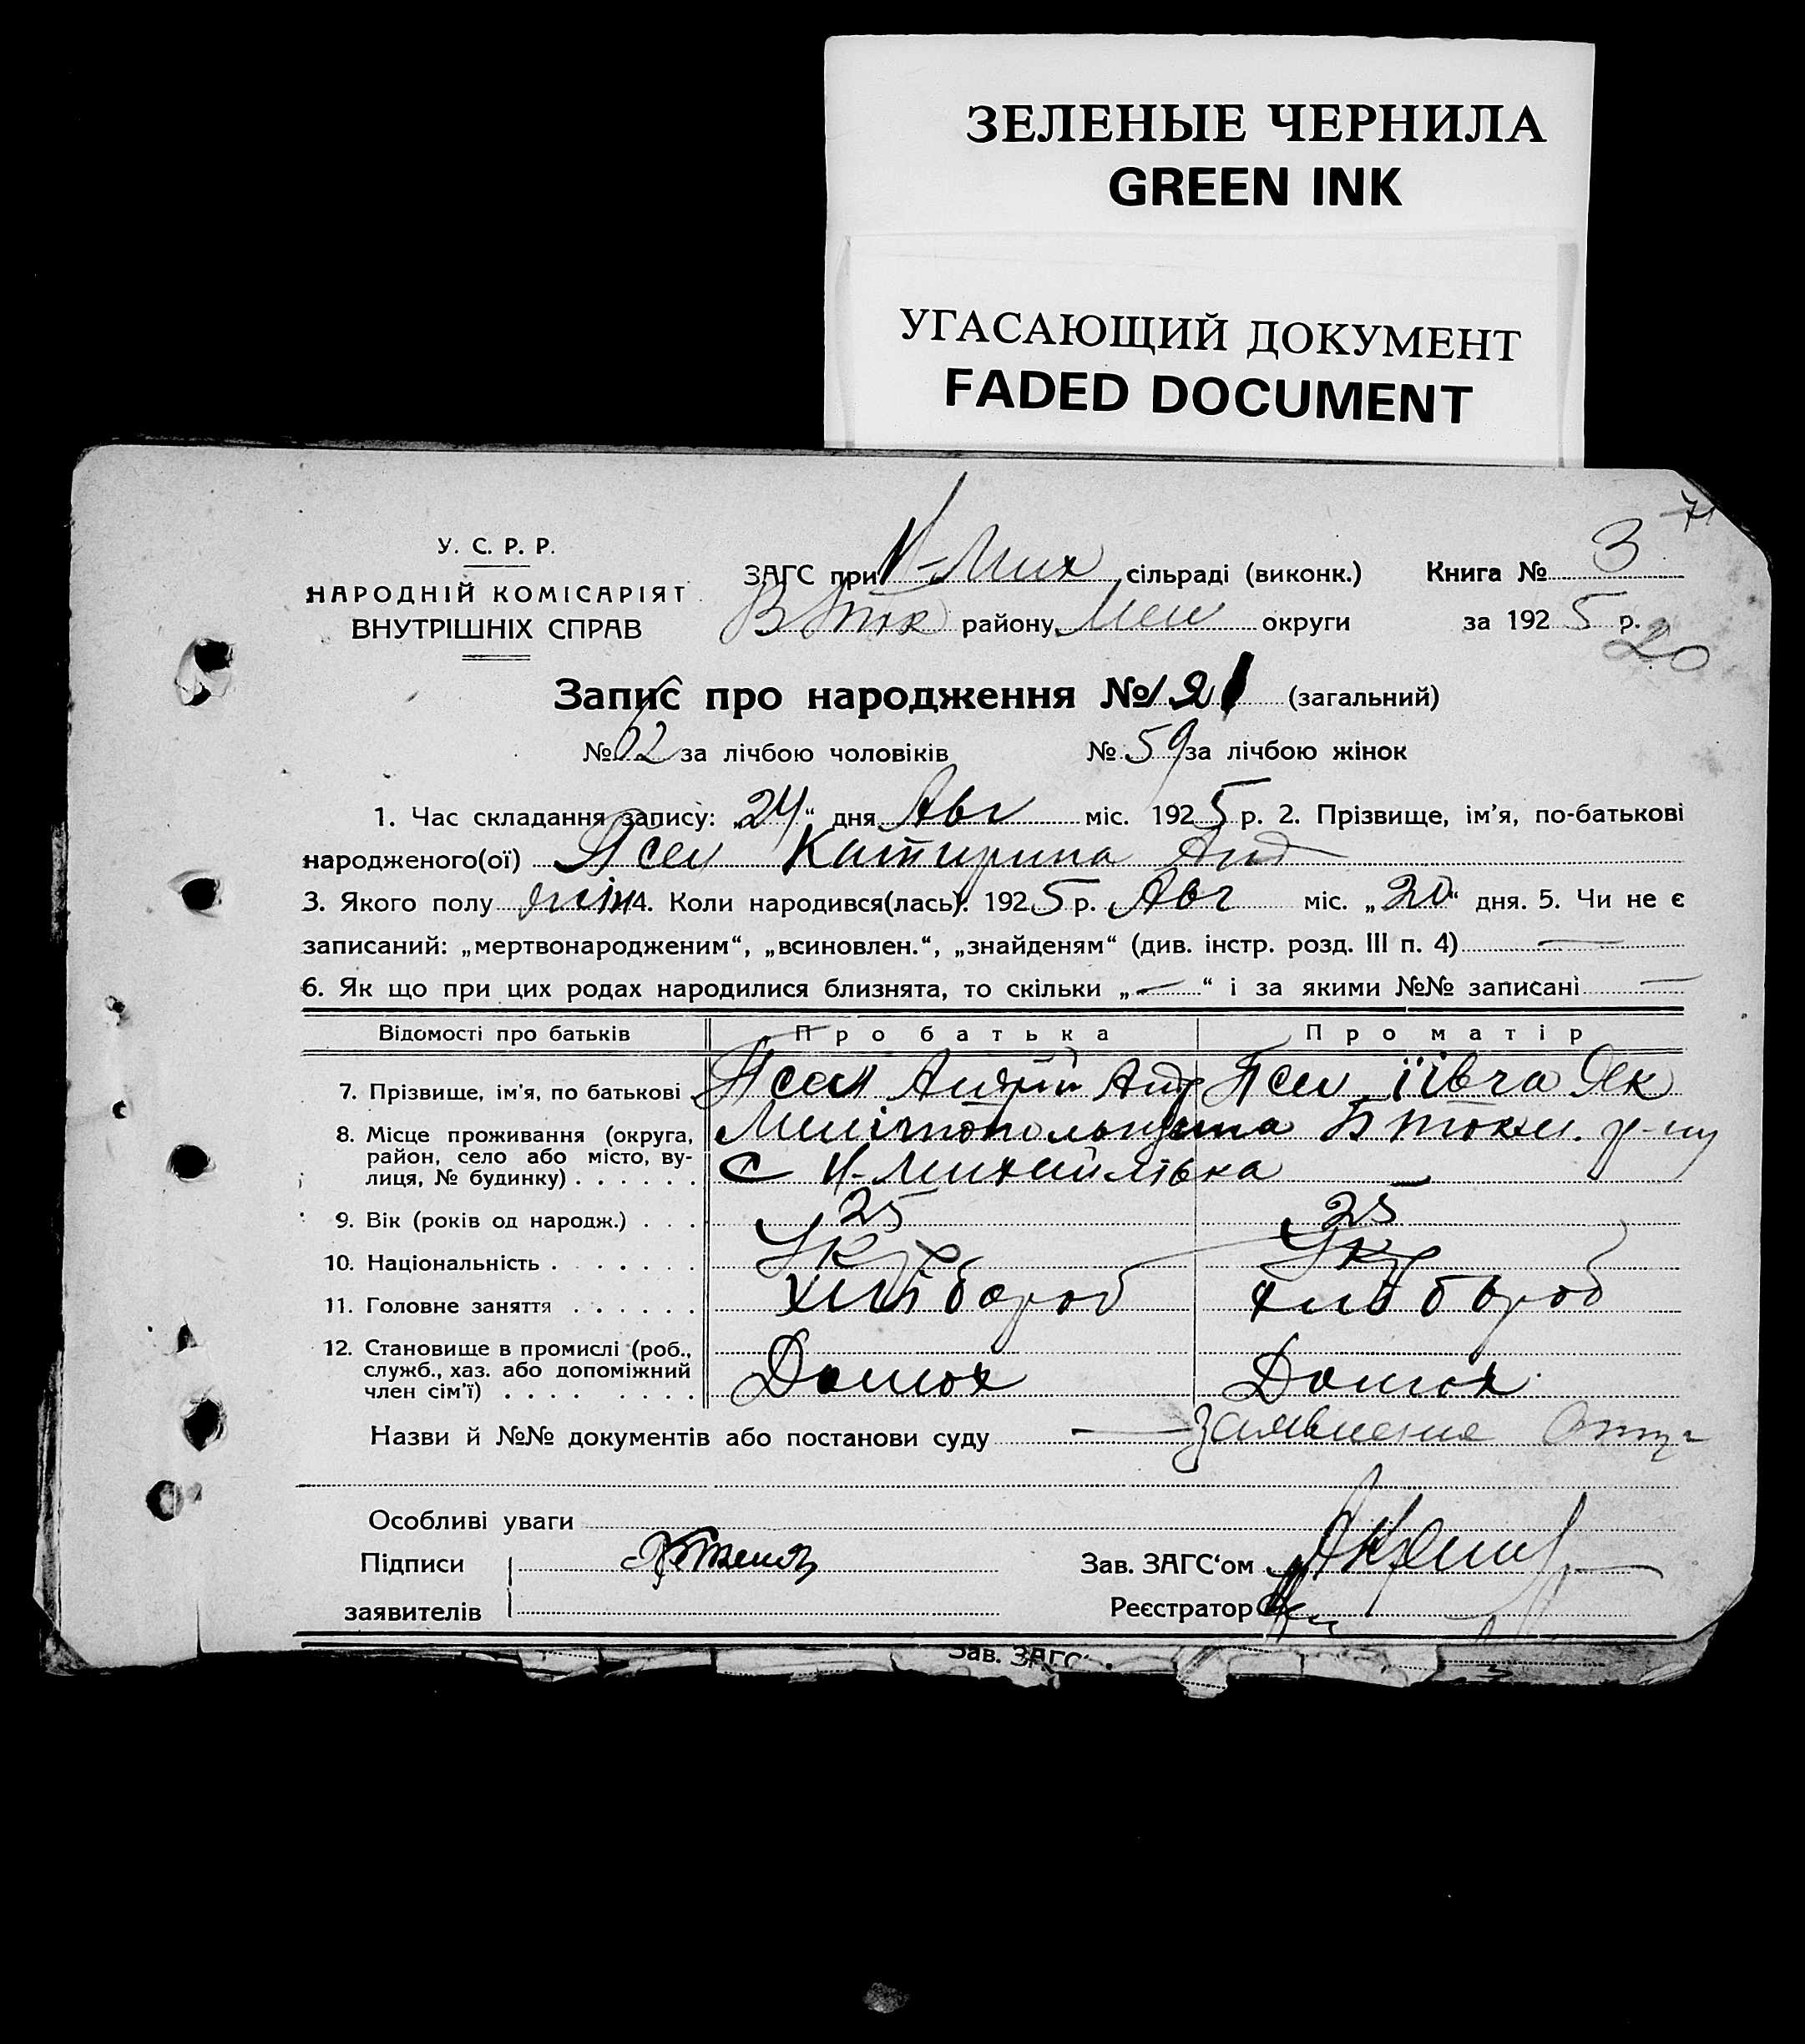 ЗЕЛЕНЫЕ ЧЕРНИЛА
GREEN INK
УГАСАЮЩИЙ ДОКУМЕНТ
FADED DOCUMENT
71
У. С. Р. Р.
НАРОДНІЙ КОМІСАРІЯТ
ВНУТРІШНІХ СПРАВ
ЗАГС при Н-Мих сільраді (виконк.) Книга № 3
району Мел округи за 1925 р.
20
Запис про народження № 121 (загальний)
№ 62 за лічбою чоловіків № 59 за лічбою жінок
1. Час складання запису: „24“ дня Авг міс. 1925 р. 2. Прізвище, ім'я, по-батькові
народженого(ої) Псел Катирина Анд
3. Якого полу жін 4. Коли народився(лась): 1925 р. Авг міс. „20“ дня. 5. Чи не є
записаний: „мертвонародженим“, „всиновлен.“, „знайденям“ (див. інстр. розд. III п. 4) —
6. Як що при цих родах народилися близнята, то скільки „—“ і за якими №№ записані —
Відомості про батьків Про батька Про матір
7. Прізвище, ім'я, по батькові Псел Андрій Анд Псел Як
8. Місце проживання (округа, район, село або місто, вулиця, № будинку) . . . . . . Мелітопольщина Б Токм. р-ну
с Н-Михайлівка
9. Вік (років од народж.) . . . 25 25
10. Національність . . . . . . . Укр Укр
11. Головне заняття . . . . . . Хліб бороб Хліб бороб
12. Становище в промислі (роб., служб., хаз. або допоміжний член сім'ї) . . . . . . . . Домох Домох
Назви й №№ документів або постанови суду — заявления
Особливі уваги
Підписи
заявителів
Зав. ЗАГС'ом
Реєстратор
Зав. ЗАГС'